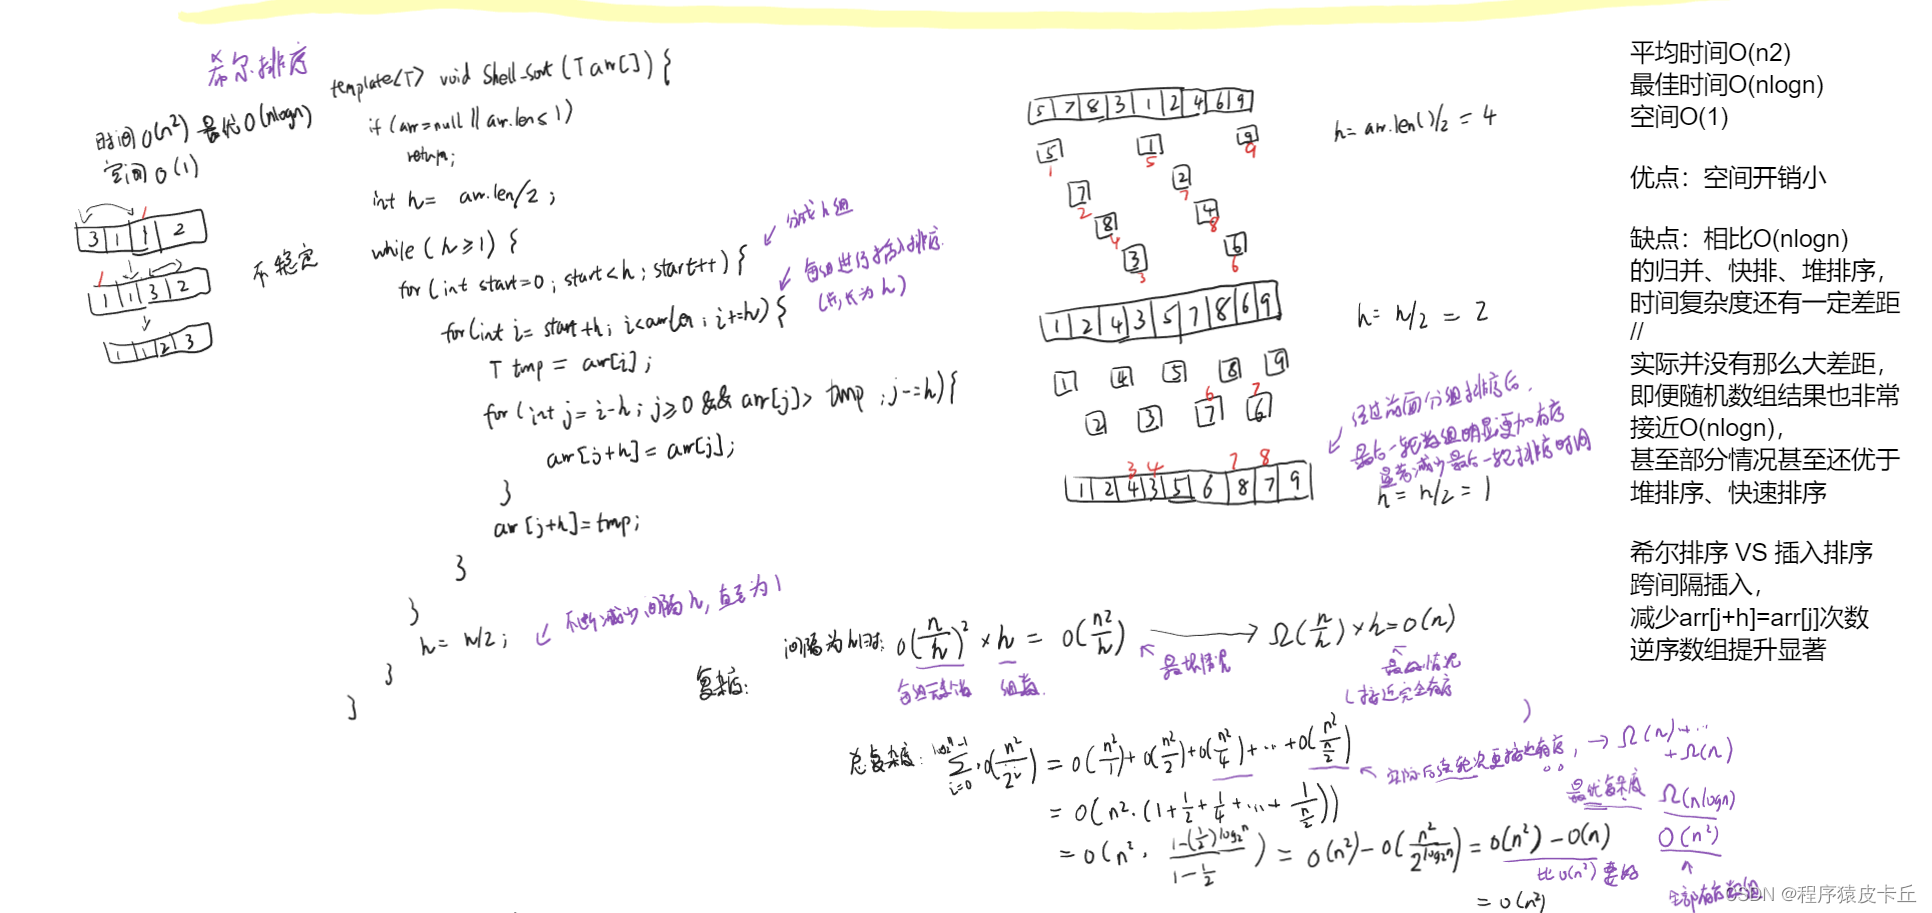 希尔排序
时间 O(n²) 最优 O(nlogn)
空间 O(1)
3 1 1 2
1 1 3 2
1 1 2 3
不稳定
template<T> void Shell_Sort (T arr[]) {
if (arr=null || arr.len≤1)
return;
int h= arr.len/2;
while (h≥1) {
for (int start=0; start<h; start++) {
for(int i= start+h; i<arr.len; i+=h) {
T tmp = arr[i];
for (int j=i-h; j≥0 && arr[j]> tmp; j-=h) {
arr[j+h] = arr[j];
}
arr[j+h]=tmp;
}
}
h= h/2;
}
}
分成h组
每组进行插入排序
(步长为h)
不断减少间隔h,直至为1
5 7 8 3 1 2 4 6 9
h=arr.len()/2 = 4
5 1 9
1 5 9
7 2
2 7
8 4
4 8
3 6
3 6
1 2 4 3 5 7 8 6 9
h= h/2 = 2
1 4 5 8 9
6 7
2 3 7 6
3 4 7 8
1 2 4 3 5 6 8 7 9
经过前面分组排序后,
最后一轮数组明显更加有序
显著减少最后一轮排序时间
h = h/2 = 1
复杂度:
间隔为h时: O(n/h)² × h = O(n²/h) → Ω(n/h)×h=O(n)
每组元素个数 组数 最坏情况 最好情况
(接近完全有序
)
总复杂度: ∑ i=0 log₂ⁿ-1 O(n²/2ⁱ) = O(n²/1)+O(n²/2)+O(n²/4)+…+O(n²/(n/2))
实际后续轮次更接近有序, → Ω(n)+…
+Ω(n)
= O(n²·(1+1/2+1/4+…+1/(n/2)))
最优复杂度 Ω(nlogn)
= O(n²·(1-(1/2)^log₂ⁿ)/(1-1/2)) = O(n²)-O(n²/2^log₂ⁿ) = O(n²)-O(n)
O(n²)
比O(n²)要好
= O(n²)
平均时间O(n2)
最佳时间O(nlogn)
空间O(1)
优点：空间开销小
缺点：相比O(nlogn)
的归并、快排、堆排序，
时间复杂度还有一定差距
//
实际并没有那么大差距，
即便随机数组结果也非常
接近O(nlogn)，
甚至部分情况甚至还优于
堆排序、快速排序
希尔排序 VS 插入排序
跨间隔插入，
减少arr[j+h]=arr[j]次数
逆序数组提升显著
CSDN @程序猿皮卡丘